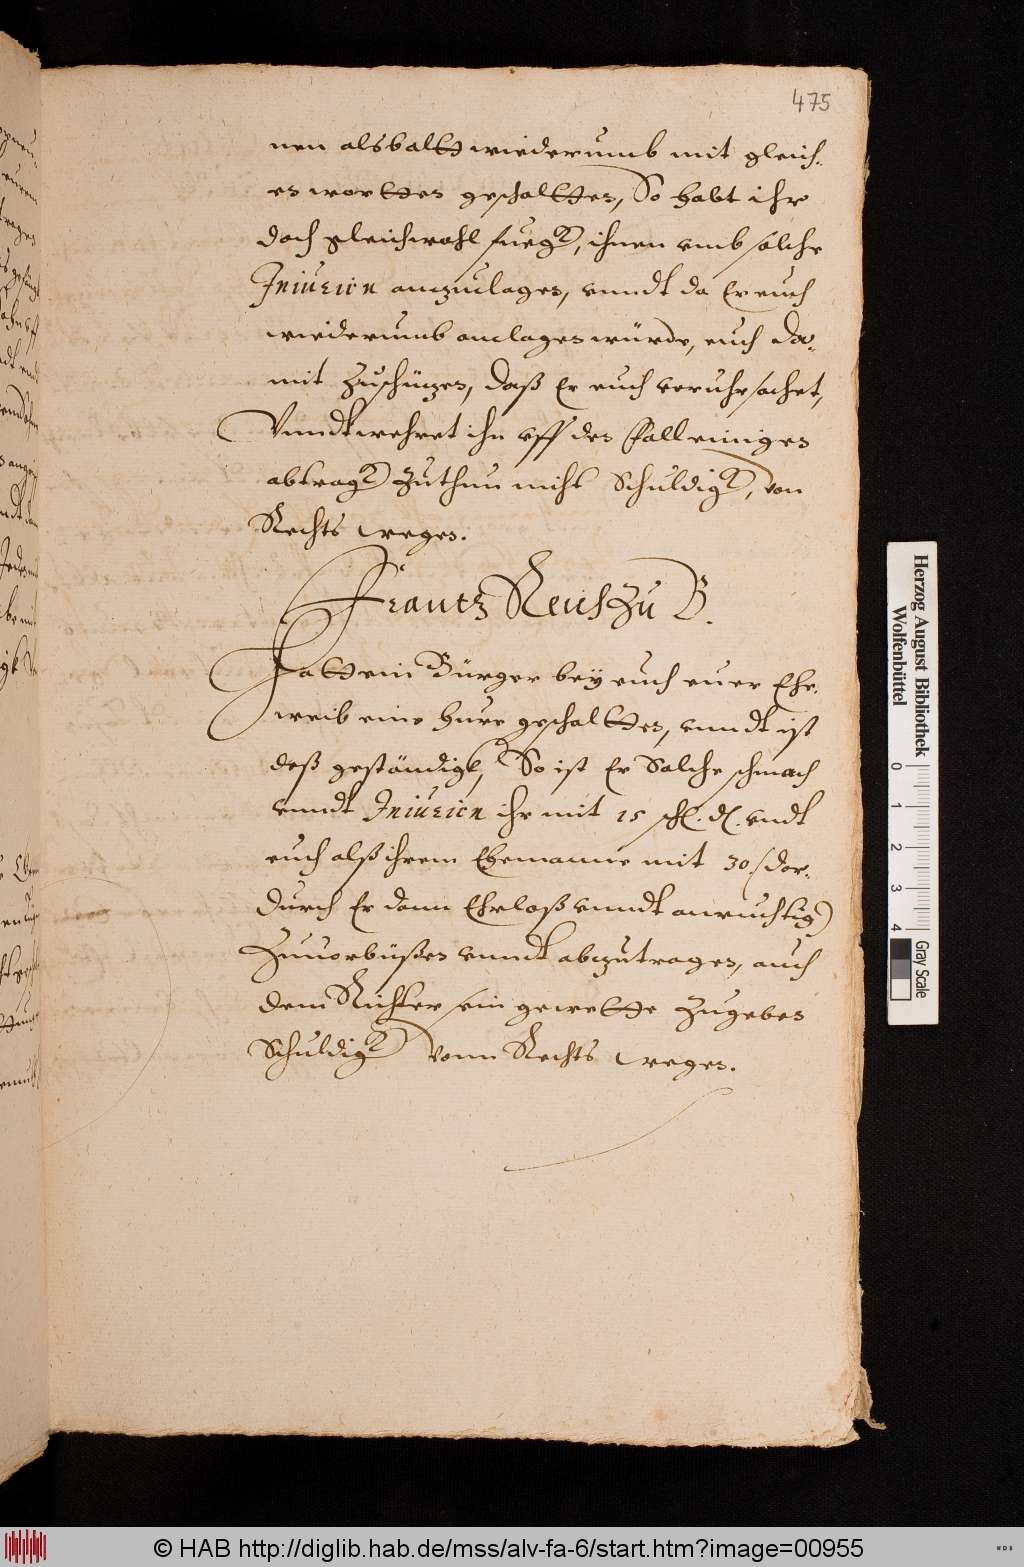 475
nen alsbaldt wiederumb mit gleich-
en wortten gescholtten, So habt ihr
doch gleichwohl fueg, ihnen vmb solche
Iniurien anzuclagen, vnndt da Er euch
wiederumb anclagen würde, euch da-
mit Zuschützen, daß Er euch veruhrsachet,
Vnndt wehret ihr vff den fall einiges
abtrag Zuthun nicht Schuldig, von
Rechts wegen.
Frantz Reich Zu B.
Hatt ein Bürger bey euch euer Ehe-
weib eine Hure gescholtten, vnndt ist
deß geständigk, So ist Er Solche schmach
vnndt Iniurien ihr mit 15 schl. d. vndt
euch alß ihrem Ehemanne mit 30. (dor-
durch Er dann Ehrloß vnndt anruchtig)
Zuuorbüßen vnndt abzutragen, auch
dem Richter sein gewette Zugeben
Schuldig Vonn Rechts wegen.
Herzog August Bibliothek
Wolfenbüttel
0 1 2 3 4
Gray Scale
© HAB http://diglib.hab.de/mss/alv-fa-6/start.htm?image=00955